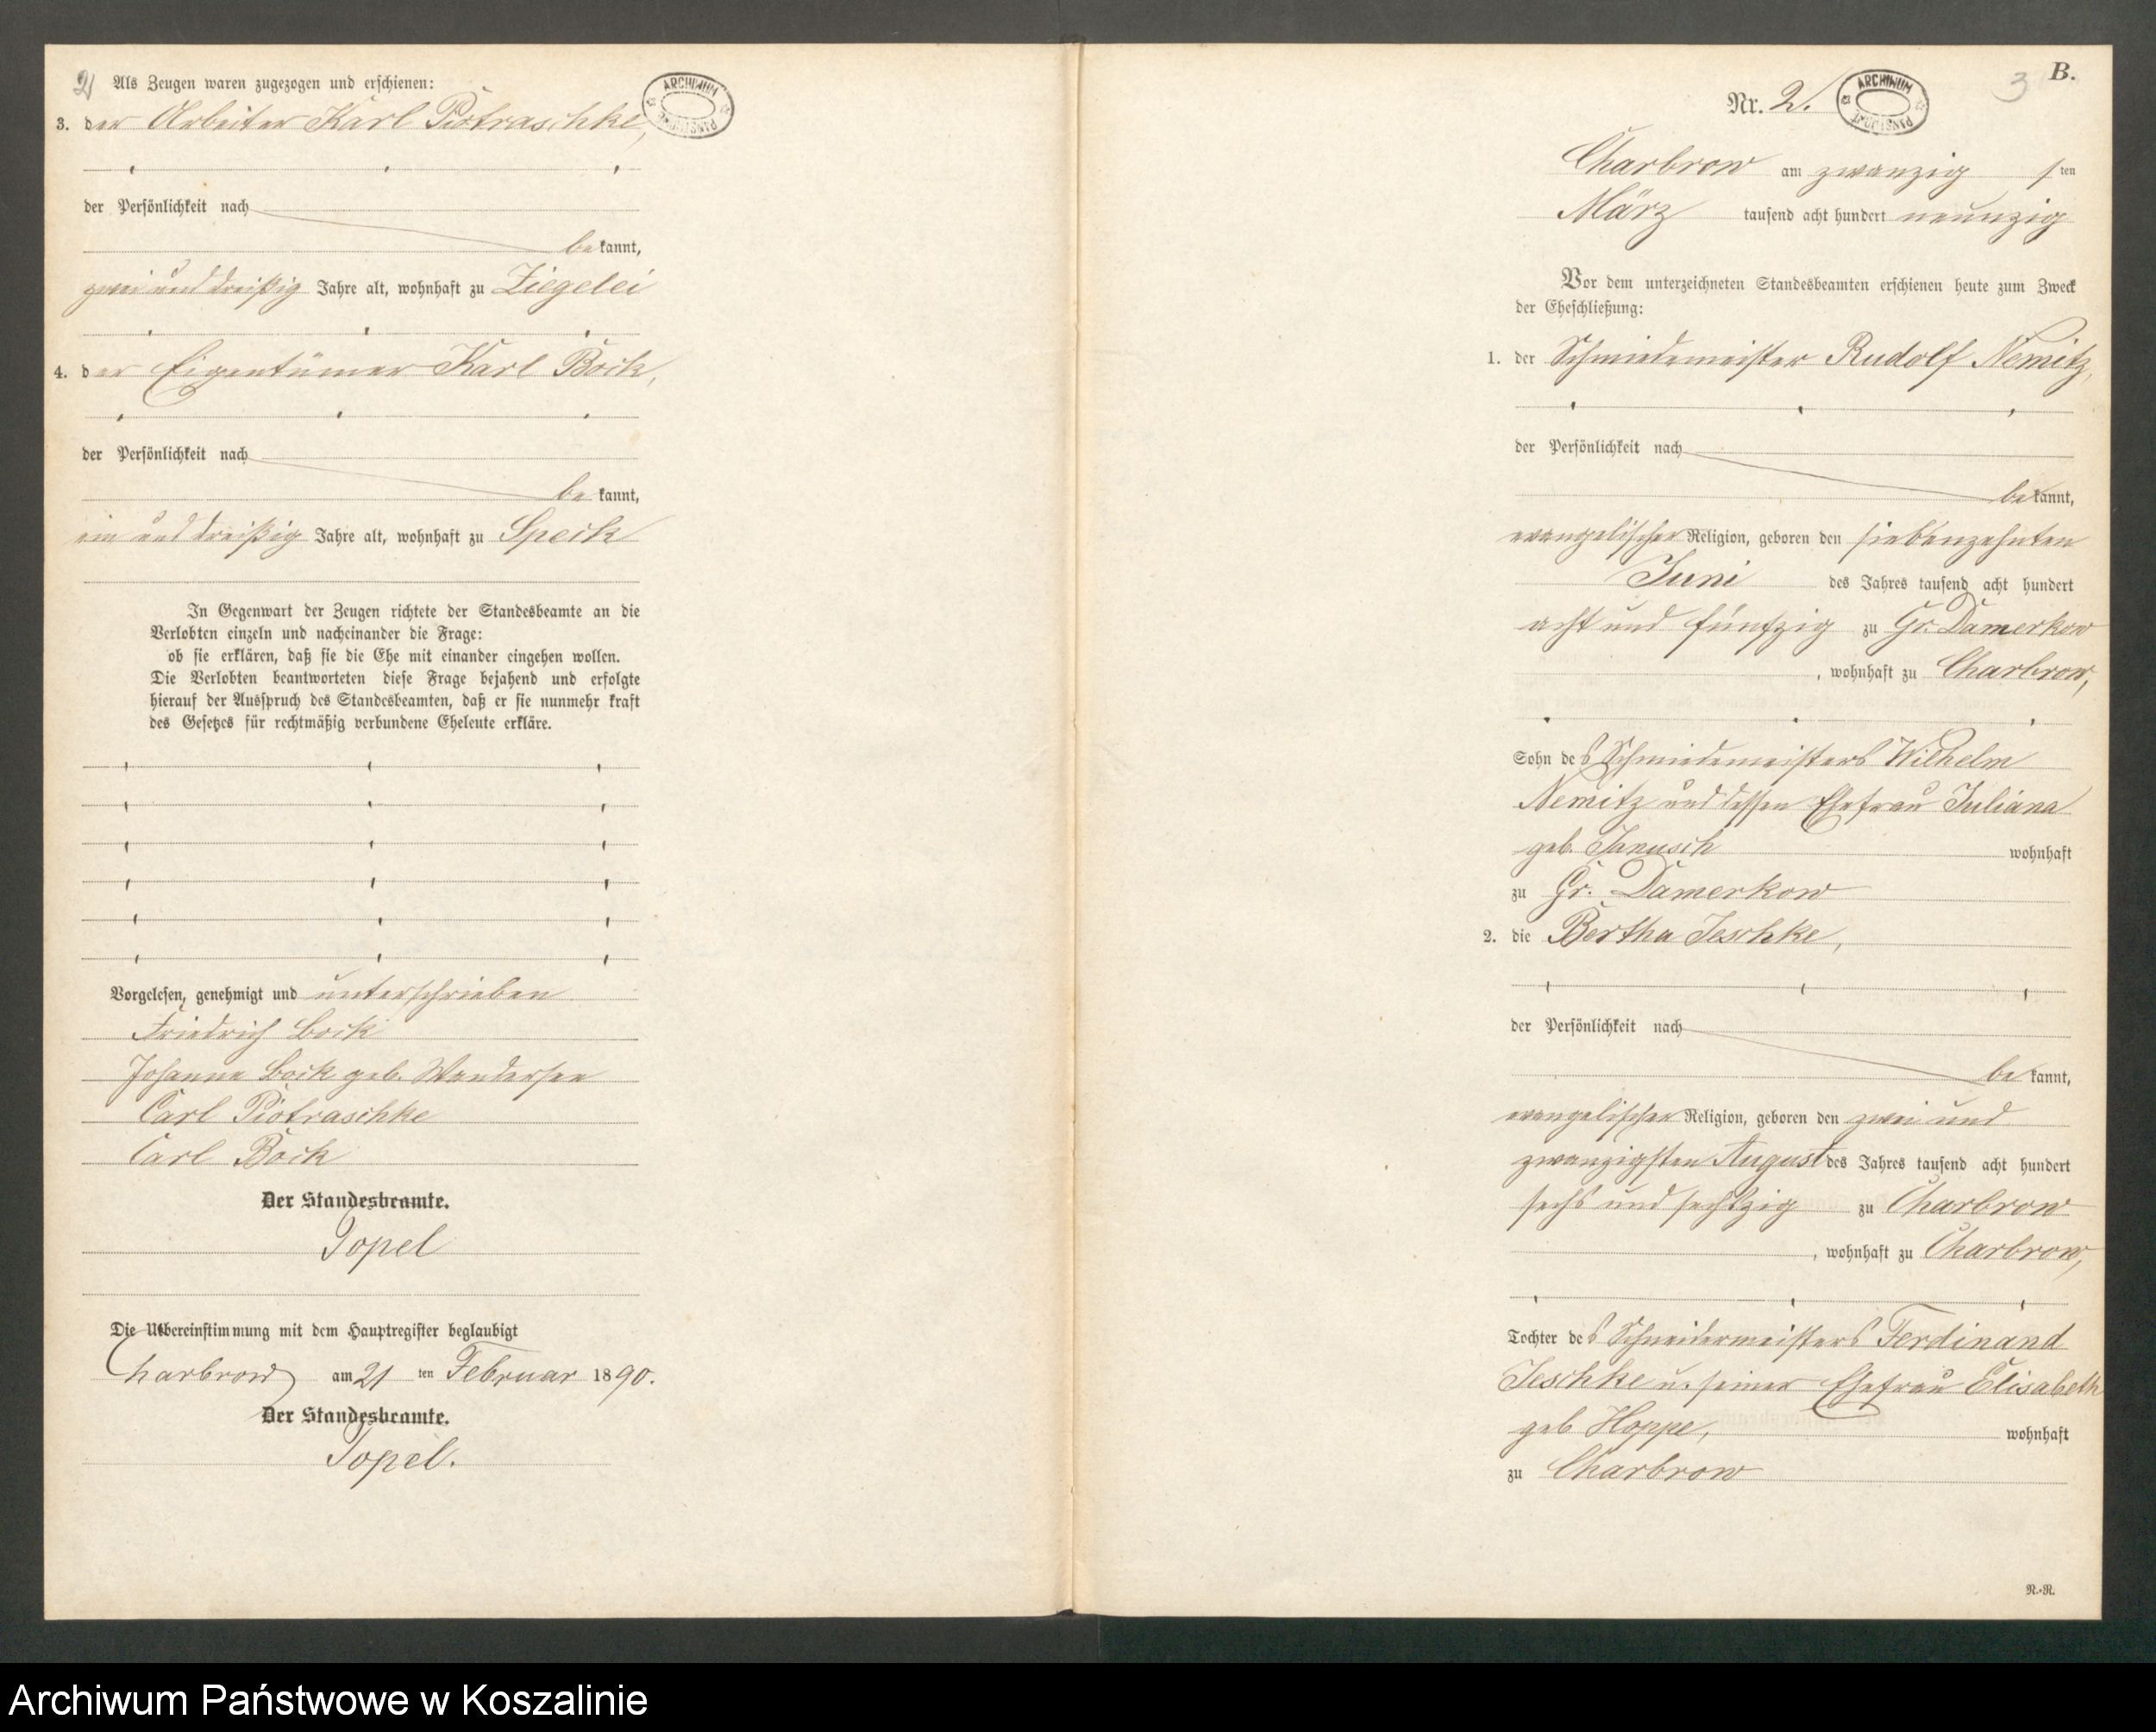 2
Als Zeugen waren zugezogen und erschienen:
3. der Arbeiter Karl Piotraschke,
der Persönlichkeit nach
bekannt,
zwei und dreißig Jahre alt, wohnhaft zu Ziegelei
4. der Eigentümer Karl Bock,
der Persönlichkeit nach
bekannt,
ein und dreißig Jahre alt, wohnhaft zu Speck
In Gegenwart der Zeugen richtete der Standesbeamte an die
Verlobten einzeln und nacheinander die Frage:
ob sie erklären, daß sie die Ehe mit einander eingehen wollen.
Die Verlobten beantworteten diese Frage bejahend und erfolgte
hierauf der Ausspruch des Standesbeamten, daß er sie nunmehr kraft
des Gesetzes für rechtmäßig verbundene Eheleute erkläre.
Vorgelesen, genehmigt und unterschrieben
Friedrich Bock
Johanna Bock geb. Wandersee
Carl Piotraschke
Carl Bock
Der Standesbeamte.
Topel
Die Uebereinstimmung mit dem Hauptregister beglaubigt
Charbrow am 21 ten Februar 1890.
Der Standesbeamte.
Topel.
ARCHIWUM PAŃSTWOWE
B.
3
Nr. 2.
ARCHIWUM PAŃSTWOWE
Charbrow am zwanzig sten
März tausend acht hundert neunzig
Vor dem unterzeichneten Standesbeamten erschienen heute zum Zweck
der Eheschließung:
1. der Schmiedemeister Rudolf Nemitz,
der Persönlichkeit nach
bekannt,
evangelischer Religion, geboren den siebenzehnten
Juni des Jahres tausend acht hundert
acht und fünfzig zu Gr. Damerkow
, wohnhaft zu Charbrow,
Sohn des Schmiedemeisters Wilhelm
Nemitz und dessen Ehefrau Juliana
geb. Janusch wohnhaft
zu Gr. Damerkow
2. die Bertha Jeschke,
der Persönlichkeit nach
bekannt,
evangelischer Religion, geboren den zwei und
zwanzigsten August des Jahres tausend acht hundert
sechs und sechszig zu Charbrow
, wohnhaft zu Charbrow,
Tochter des Schneidermeisters Ferdinand
Jeschke u. seiner Ehefrau Elisabeth
geb Hoppe, wohnhaft
zu Charbrow
N.-R.
Archiwum Państwowe w Koszalinie